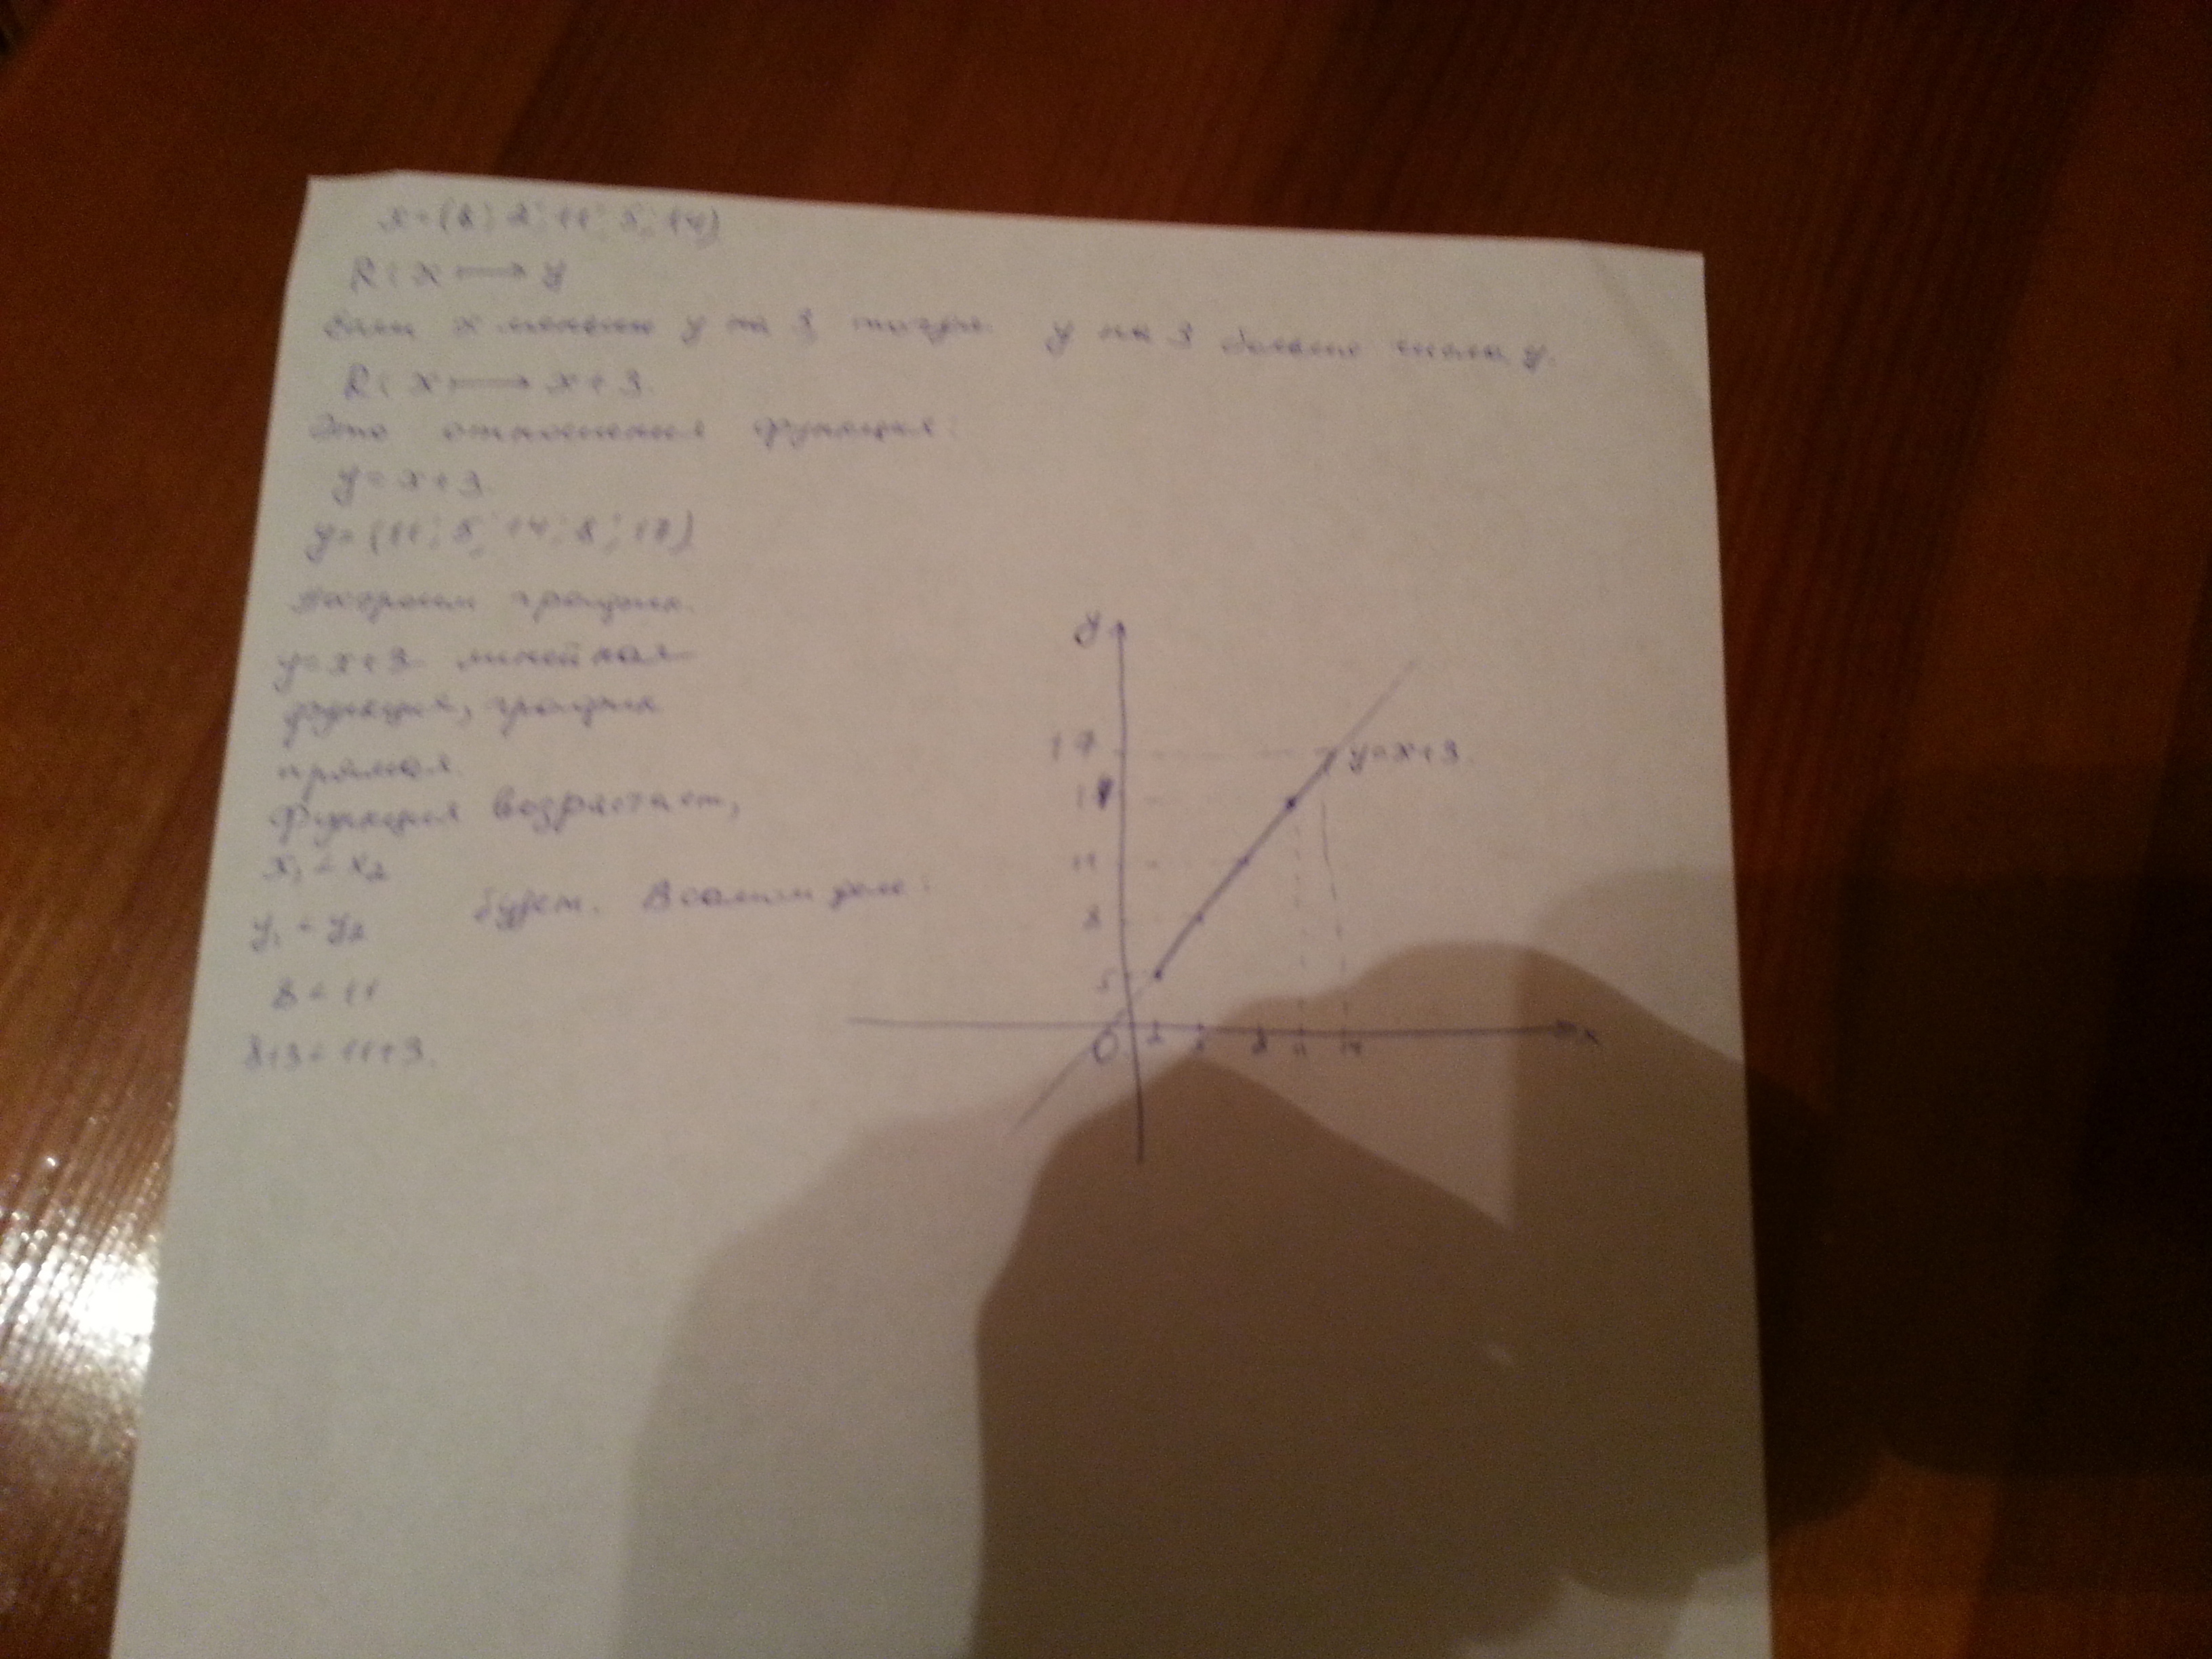 x = (8; 2; 11; 5; 14)
R: x ⟶ y
Если x меньше y на 3, тогда y на 3 больше числа y.
R: x ⟶ x+3.
Это отношения функция:
y = x+3.
y = (11; 5; 14; 8; 17)
Построим график.
y = x+3 линейная
функция, график
прямая.
Функция возрастает,
x₁ < x₂
y₁ < y₂ будет. В самом деле:
8 < 11
8+3 < 11+3.
y
17
y=x+3.
11
8
5
O 2 5 8 11 14 x